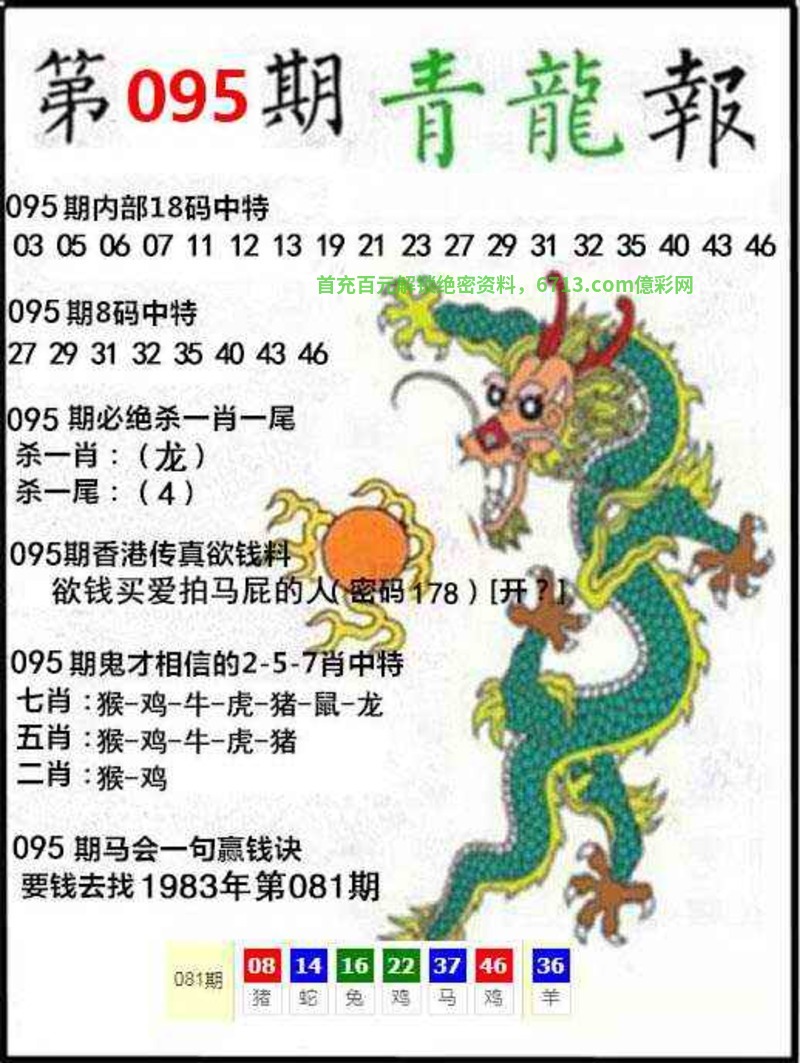 第095期青龍報
095期内部18码中特
03 05 06 07 11 12 13 19 21 23 27 29 31 32 35 40 43 46
首充百元解锁绝密资料，6713.com億彩网
095期8码中特
27 29 31 32 35 40 43 46
095期必绝杀一肖一尾
杀一肖：（龙）
杀一尾：（4）
095期香港传真欲钱料
欲钱买爱拍马屁的人（密码178）[开？]
095期鬼才相信的2-5-7肖中特
七肖：猴-鸡-牛-虎-猪-鼠-龙
五肖：猴-鸡-牛-虎-猪
二肖：猴-鸡
095期马会一句赢钱诀
要钱去找1983年第081期
081期 08 14 16 22 37 46 36
猪 蛇 兔 鸡 马 鸡 羊